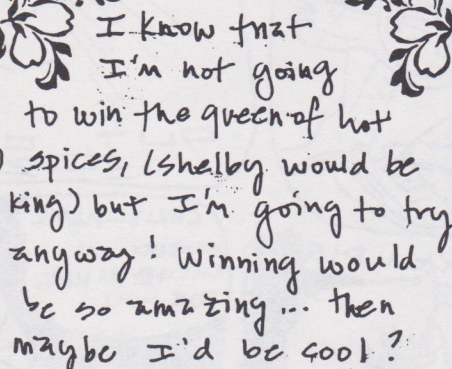 I know that
I'm not going
to win the queen of hot
spices, (shelby would be
king) but I'm going to try
anyway! Winning would
be so amazing... then
maybe I'd be cool?